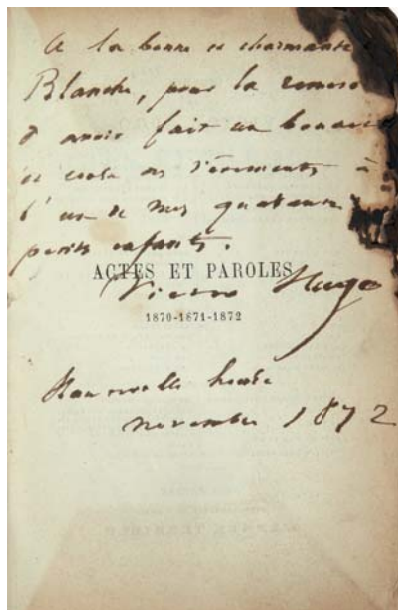 A la bonne et charmante
Blanche, pour la
d'avoir fait un
vêtements à
l'un de mes
petits enfants.
ACTES ET PAROLES
Victor Hugo
1870-1871-1872
Hauteville house
novembre 1872